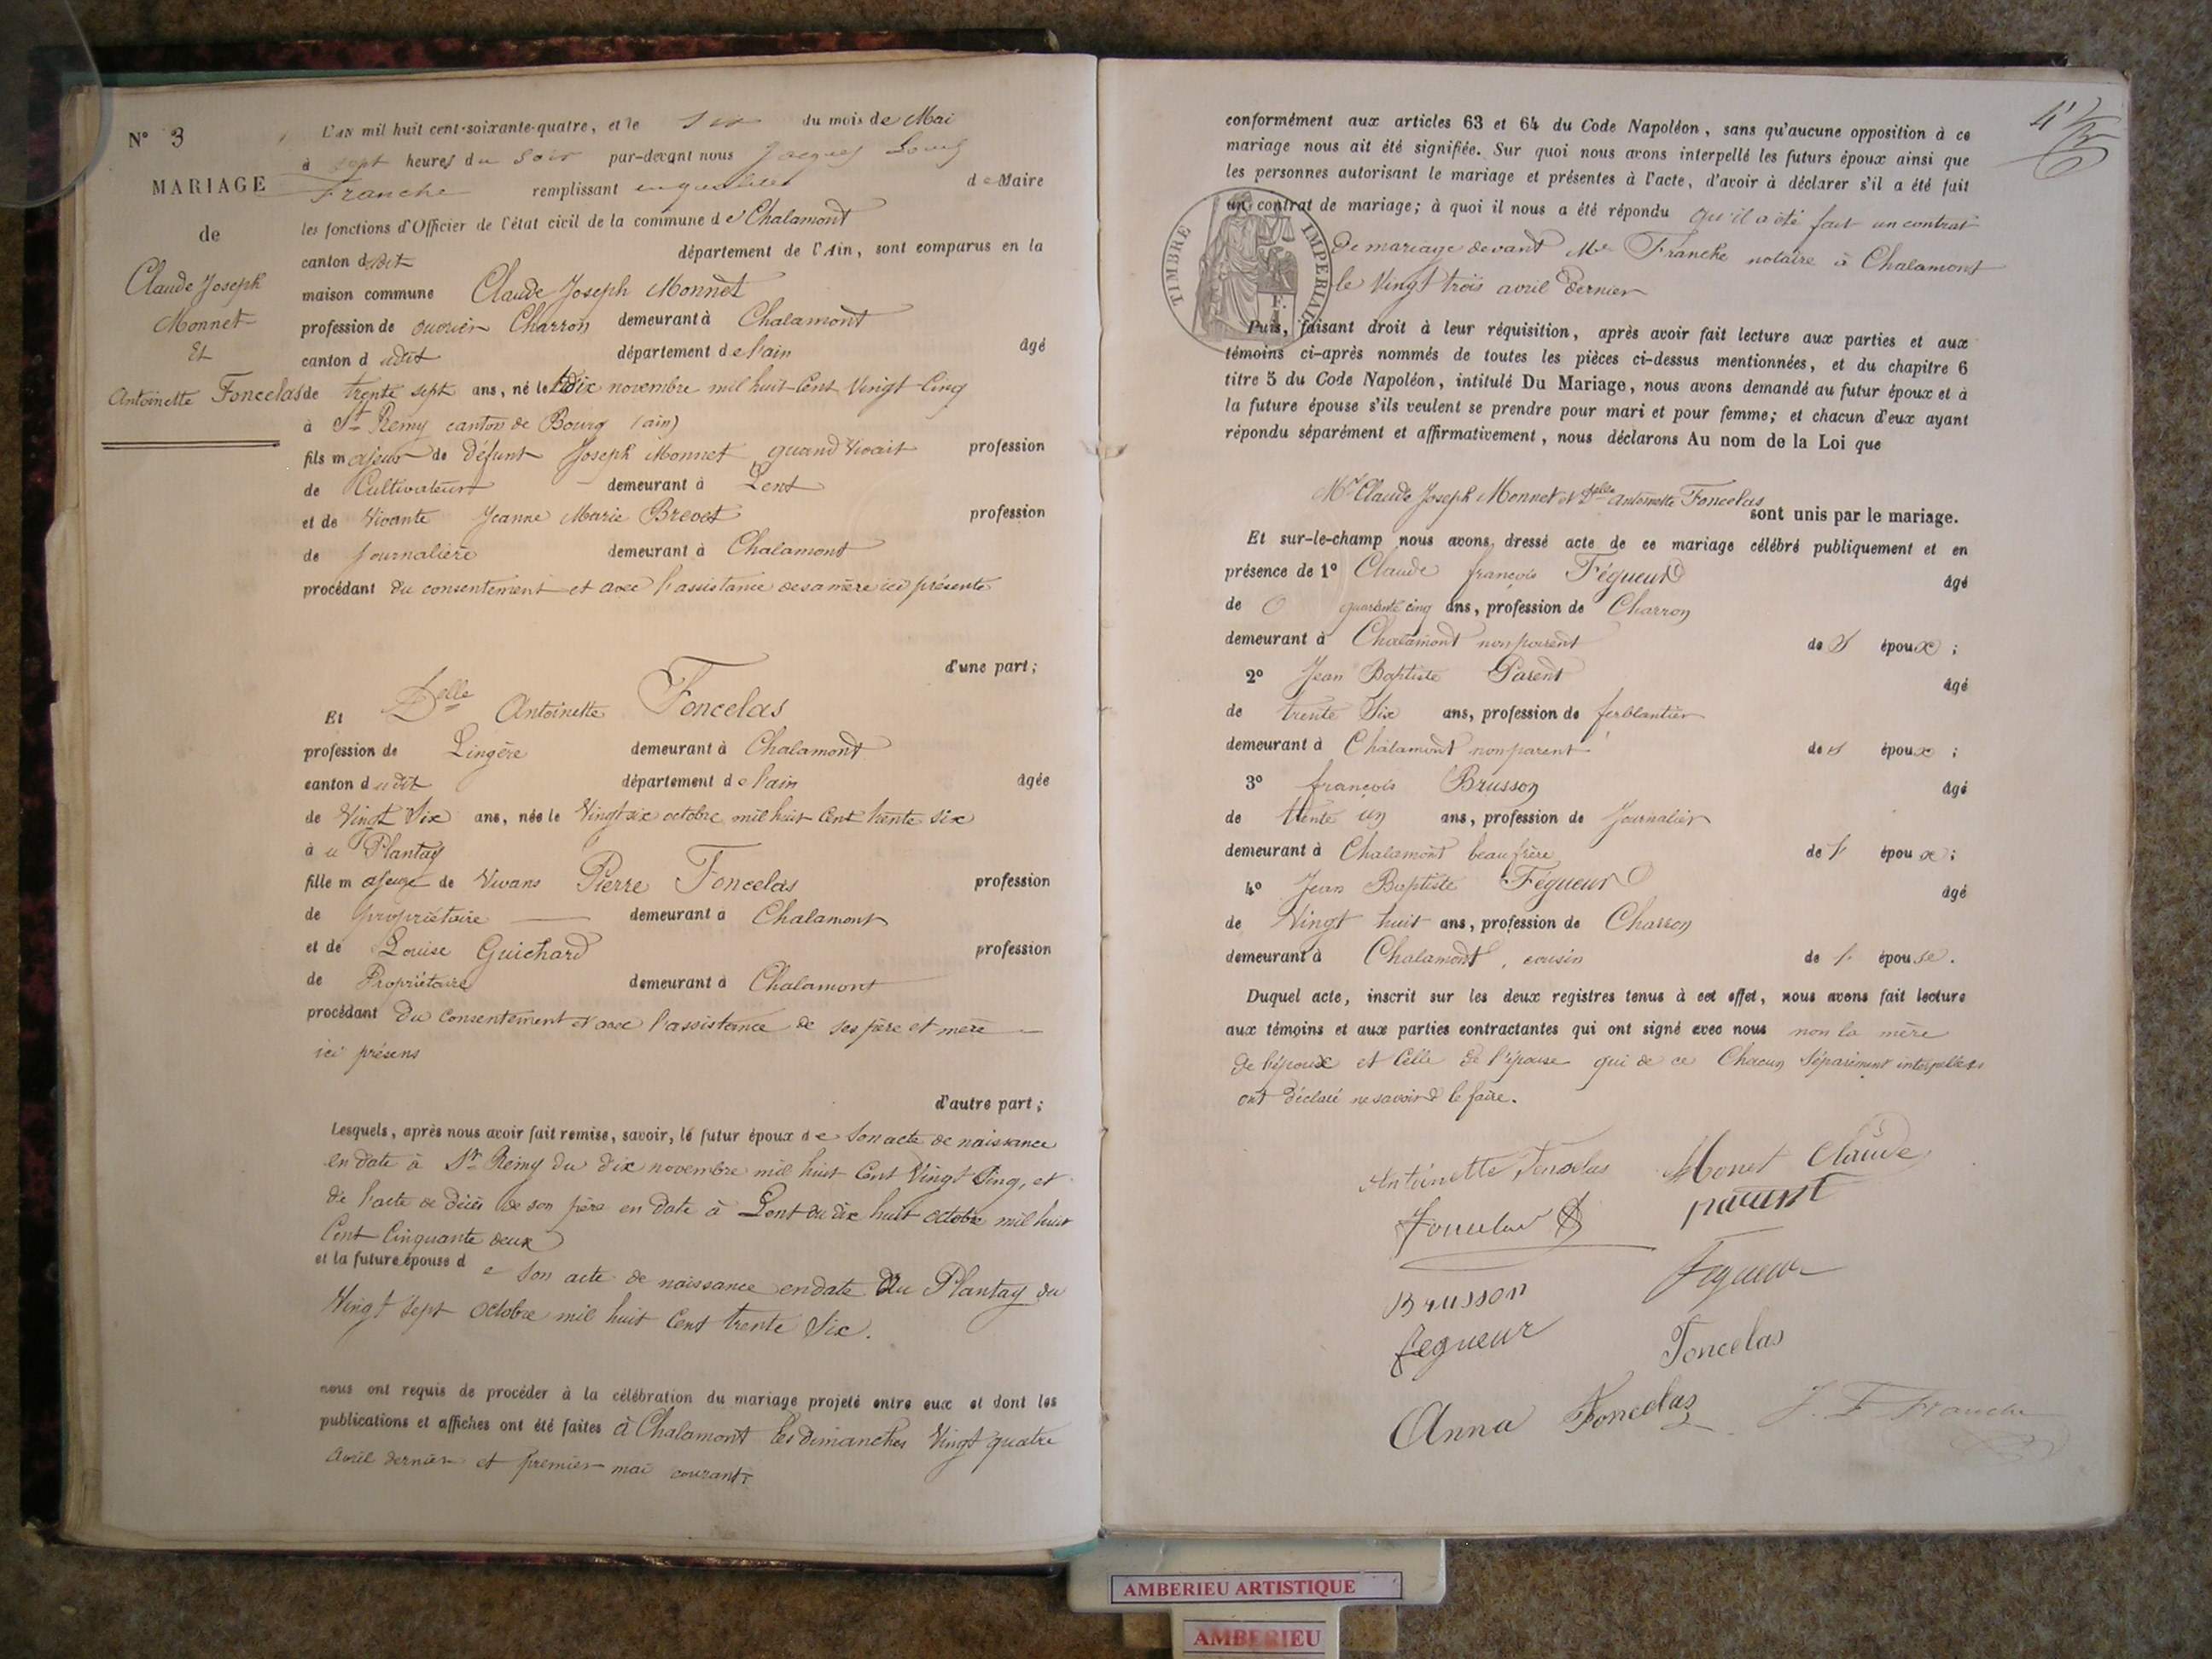 N° 3
MARIAGE
de
Claude Joseph
Monnet
Et
Antoinette Foncelas
L'AN mil huit cent-soixante-quatre, et le Six du mois de Mai
à sept heures du Soir par-devant nous Jacques Louis
Franche remplissant en qualité de Maire
les fonctions d'Officier de l'état civil de la commune de Chalamont
canton dudit département de l'Ain, sont comparus en la
maison commune Claude Joseph Monnet
profession de ouvrier Charron demeurant à Chalamont
canton dudit département de l'ain âgé
de trente sept ans, né le dix novembre mil huit Cent Vingt Cinq
à St Remy canton de Bourg (ain)
fils majeur de Défunt Joseph Monnet quand vivait profession
de Cultivateur demeurant à Lent
et de Vivante Jeanne Marie Brevet profession
de Journalière demeurant à Chalamont
procédant du consentement et avec l'assistance de sa mère ici présente
d'une part;
Et Delle Antoinette Foncelas
profession de Lingère demeurant à Chalamont
canton dudit département de l'ain âgée
de Vingt Six ans, née le Vingt six octobre mil huit Cent trente Six
à u Plantay
fille majeure de Vivans Pierre Foncelas profession
de propriétaire demeurant à Chalamont
et de Louise Guichard profession
de Propriétaire demeurant à Chalamont
procédant du Consentement et avec l'assistance de ses père et mère
ici présens
d'autre part;
Lesquels, après nous avoir fait remise, savoir, le futur époux de Son acte de naissance
en date à St Remy du dix novembre mil huit Cent Vingt Cinq, et
de l'acte de décès de son père en date à Lent du dix huit octobre mil huit
Cent Cinquante deux
et la future épouse de Son acte de naissance en date du Plantay du
Vingt Sept Octobre mil huit Cent trente Six.
nous ont requis de procéder à la célébration du mariage projeté entre eux et dont les
publications et affiches ont été faites à Chalamont les dimanches Vingt quatre
avril dernier et premier mai courant
conformément aux articles 63 et 64 du Code Napoléon, sans qu'aucune opposition à ce
mariage nous ait été signifiée. Sur quoi nous avons interpellé les futurs époux ainsi que
les personnes autorisant le mariage et présentes à l'acte, d'avoir à déclarer s'il a été fait
un contrat de mariage; à quoi il nous a été répondu qu'il a été fait un contrat
de mariage devant Me Franche notaire à Chalamont
le Vingt trois avril dernier
TIMBRE IMPERIAL
Puis, faisant droit à leur réquisition, après avoir fait lecture aux parties et aux
témoins ci-après nommés de toutes les pièces ci-dessus mentionnées, et du chapitre 6
titre 5 du Code Napoléon, intitulé Du Mariage, nous avons demandé au futur époux et à
la future épouse s'ils veulent se prendre pour mari et pour femme; et chacun d'eux ayant
répondu séparément et affirmativement, nous déclarons Au nom de la Loi que
Mr Claude Joseph Monnet et Delle Antoinette Foncelas
sont unis par le mariage.
Et sur-le-champ nous avons dressé acte de ce mariage célébré publiquement et en
présence de 1° Claude françois Fégueur âgé
de quarante cinq ans, profession de Charron
demeurant à Chalamont non parent de l' époux;
2° Jean Baptiste Parent âgé
de trente Six ans, profession de ferblantier
demeurant à Chalamont non parent de l' époux;
3° françois Brusson âgé
de trente un ans, profession de Journalier
demeurant à Chalamont beau frère de l' époux;
4° Jean Baptiste Fégueur âgé
de Vingt huit ans, profession de Charron
demeurant à Chalamont, cousin de l' épouse.
Duquel acte, inscrit sur les deux registres tenus à cet effet, nous avons fait lecture
aux témoins et aux parties contractantes qui ont signé avec nous non la mère
de l'époux et Celle de l'épouse qui de ce Chacun Séparément interpellées
ont déclaré ne savoir le faire.
Antoinette Foncelas Monet Claude
Foncelas parent
Brusson Fegueur
fegueur Foncelas
Anna Foncelas J. L Franche
AMBERIEU ARTISTIQUE
AMBERIEU